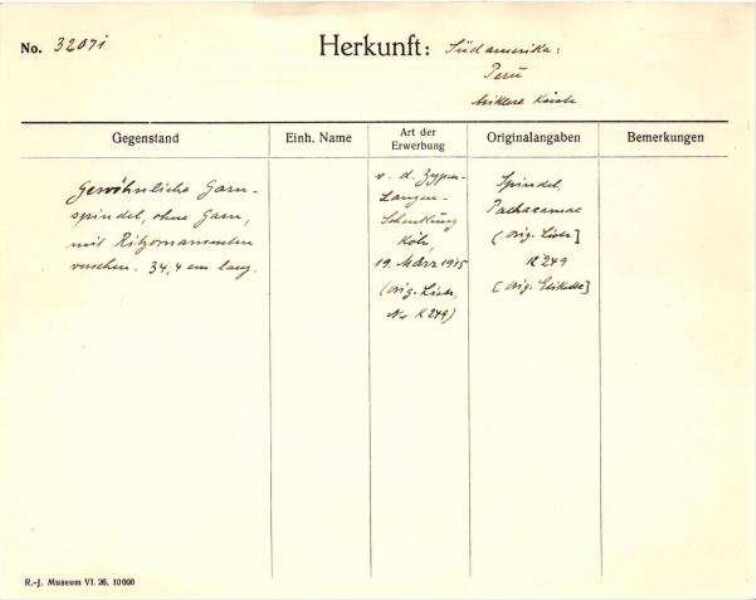 No. 3207i
Herkunft: Südamerika:
Perú
Mittlere Küste
Gegenstand
Einh. Name
Art der
Erwerbung
Originalangaben
Bemerkungen
Gewöhnliche Garn-
spindel, ohne Garn,
mit Ritzornamenten
versehen. 34,4 cm lang.
v. d. Zypen-
Langen-
Schenkung
Köln,
19. März 1915
(orig. Liste,
Nr K 249)
Spindel,
Pachacamac
(orig. Liste]
K 249
[orig. Etikette]
R.-J. Museum VI. 26. 10000